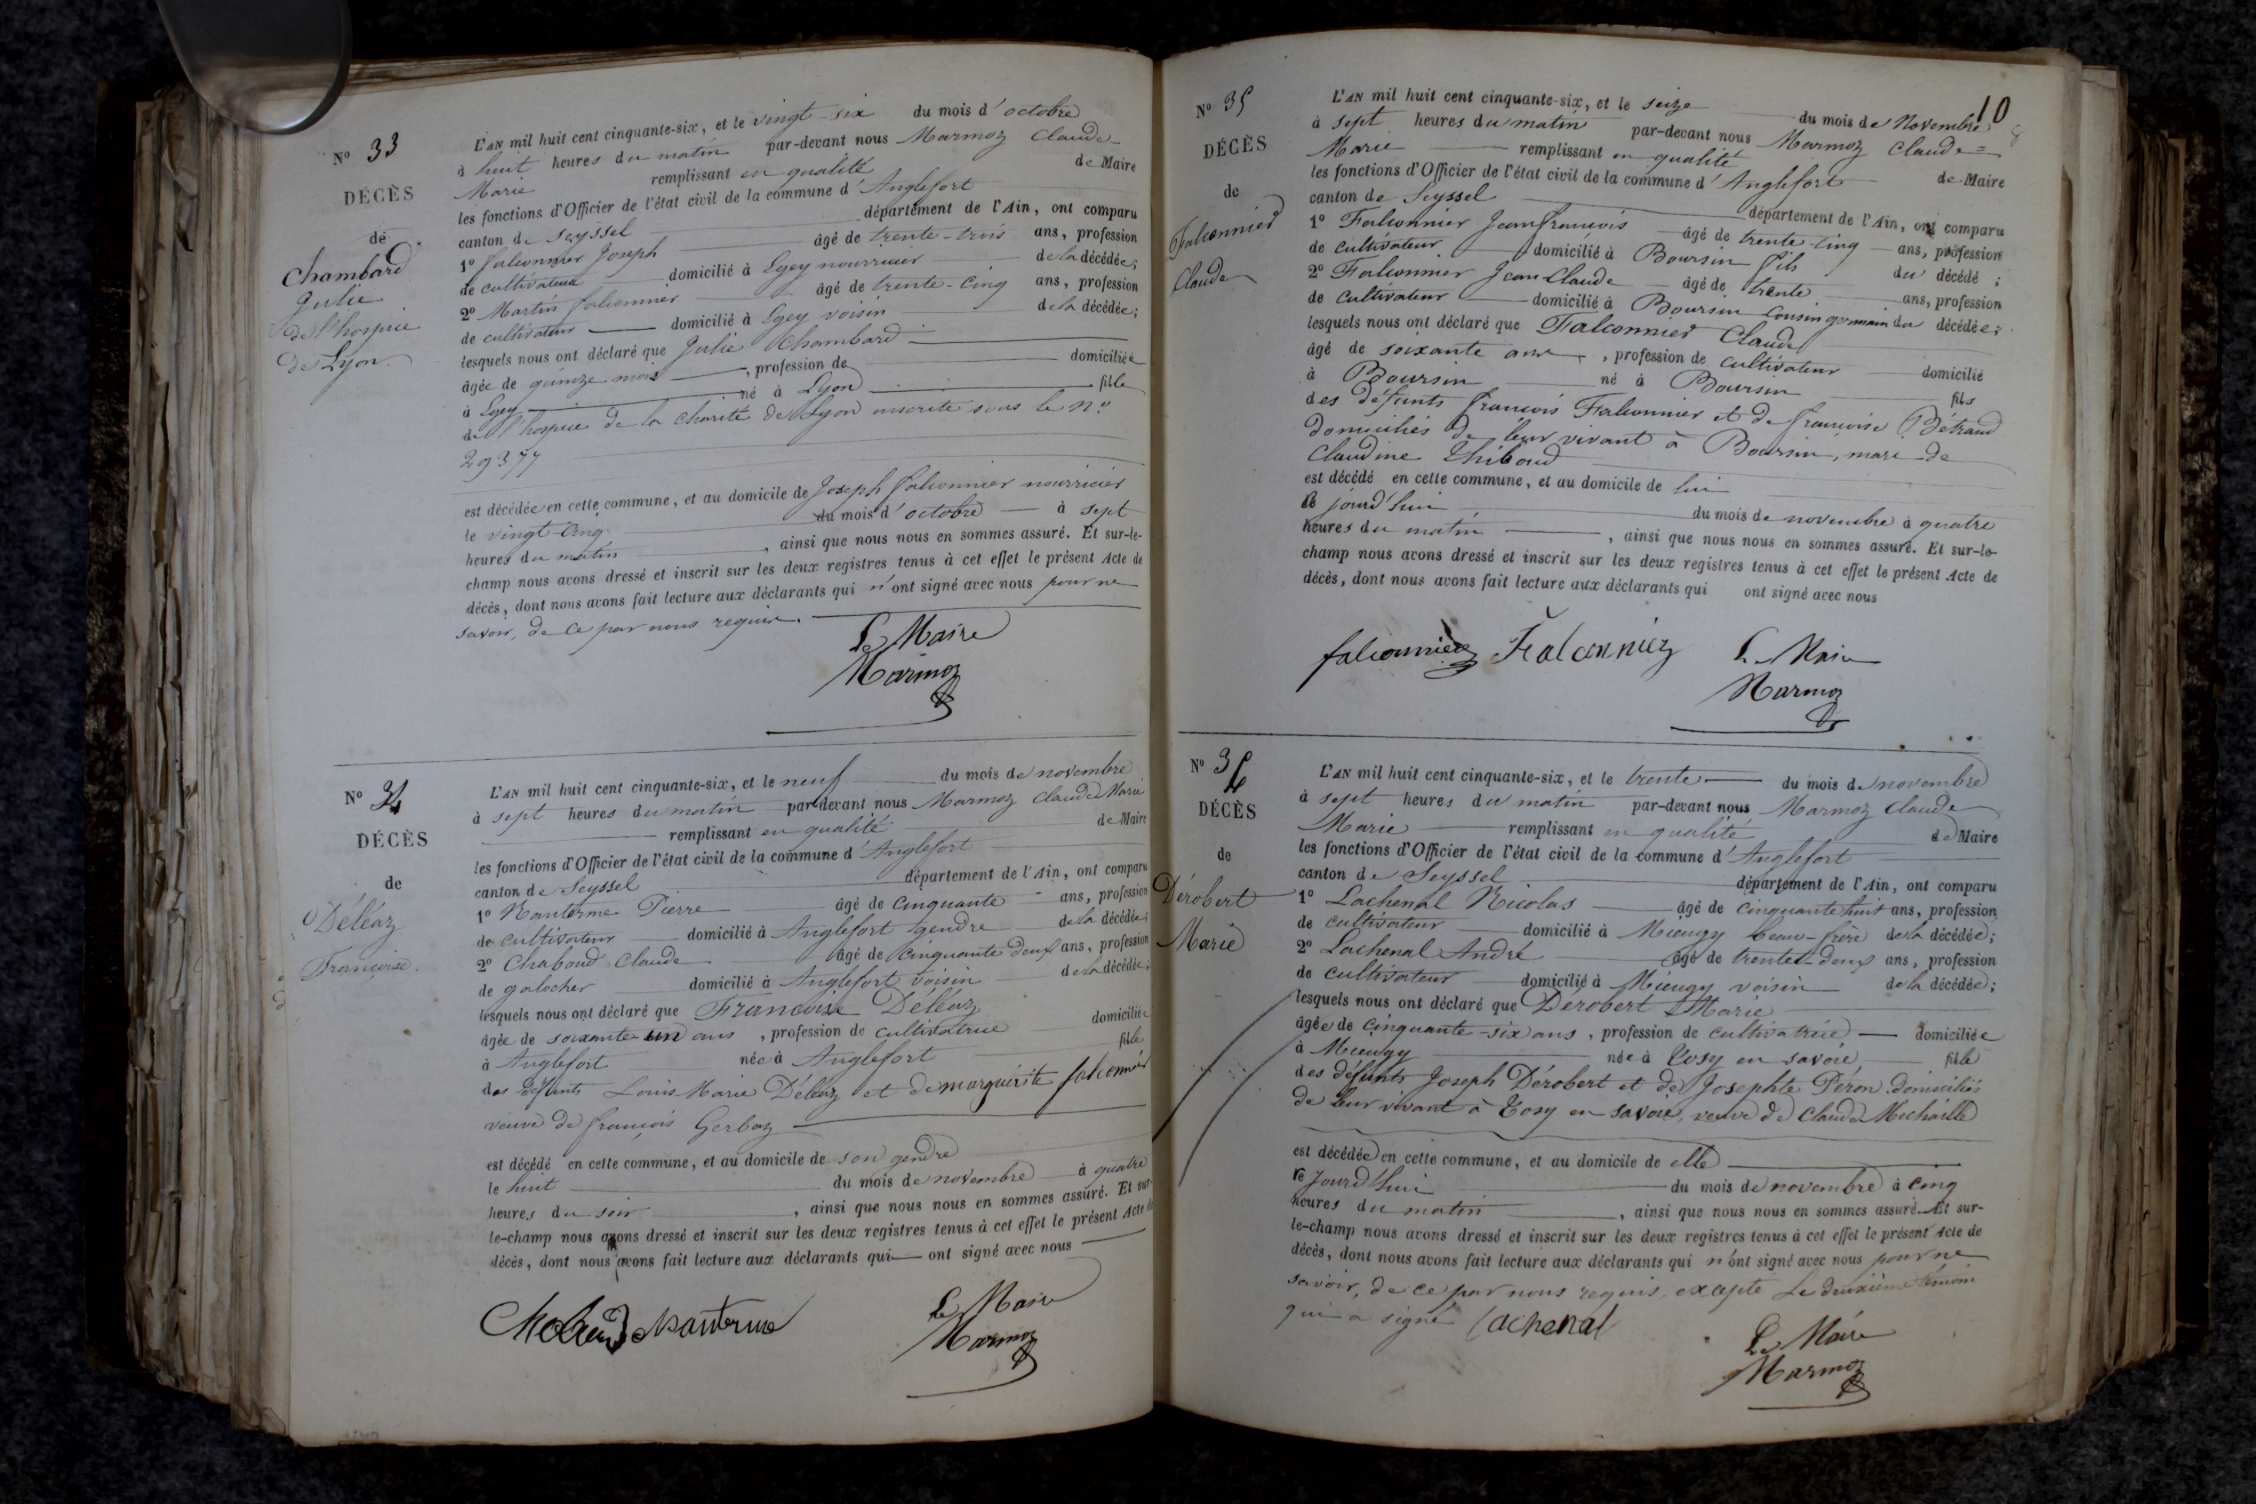 Nº 33
DÉCÈS
de
Chambard
Julie
de l'hospice
de Lyon.
L'AN mil huit cent cinquante-six, et le vingt-six du mois d'octobre
à huit heures du matin par-devant nous Marmoz Claude
Marie remplissant en qualité de Maire
les fonctions d'Officier de l'état civil de la commune d'Anglefort
canton de Seyssel département de l'Ain, ont comparu
1º falconnier Joseph âgé de trente-trois ans, profession
de cultivateur domicilié à Lgey nourricier de la décédée;
2º Martin falconnier âgé de trente-cinq ans, profession
de cultivateur domicilié à Lgey voisin de la décédée;
lesquels nous ont déclaré que Julie Chambard
âgée de quinze mois, profession de domiciliée
à Lgey né à Lyon fille
de l'hospice de la charité de Lyon inscrite sous le nº
29377
est décédée en cette commune, et au domicile de Joseph falconnier nourricier
le vingt-cinq du mois d'octobre à sept
heures du matin, ainsi que nous nous en sommes assuré. Et sur-le-
champ nous avons dressé et inscrit sur les deux registres tenus à cet effet le présent Acte de
décès, dont nous avons fait lecture aux déclarants qui n'ont signé avec nous pour ne
savoir, de ce par nous requis.
Le Maire
Marmoz
Nº 34
DÉCÈS
de
Déléaz
Françoise.
L'AN mil huit cent cinquante-six, et le neuf du mois de novembre
à sept heures du matin par-devant nous Marmoz Claude Marie
remplissant en qualité de Maire
les fonctions d'Officier de l'état civil de la commune d'Anglefort
canton de Seyssel département de l'Ain, ont comparu
1º Nanterme Pierre âgé de cinquante ans, profession
de cultivateur domicilié à Anglefort gendre de la décédée;
2º Chaboud Claude âgé de cinquante deux ans, profession
de galocher domicilié à Anglefort voisin de la décédée;
lesquels nous ont déclaré que Françoise Déléaz
âgée de soixante-un ans, profession de cultivatrice domiciliée
à Anglefort née à Anglefort fille
des défunts Louis Marie Déléaz et de marguerite falconnier
veuve de françois Gerbaz
est décédé en cette commune, et au domicile de son gendre
le huit du mois de novembre à quatre
heures du soir, ainsi que nous nous en sommes assuré. Et sur-
le-champ nous avons dressé et inscrit sur les deux registres tenus à cet effet le présent Acte de
décès, dont nous avons fait lecture aux déclarants qui ont signé avec nous
Chaboud Nanterme
Le Maire
Marmoz
10
Nº 35
DÉCÈS
de
Falconnier
Claude
L'AN mil huit cent cinquante-six, et le seize du mois de Novembre
à sept heures du matin par-devant nous Marmoz Claude=
Marie remplissant en qualité de Maire
les fonctions d'Officier de l'état civil de la commune d'Anglefort
canton de Seyssel département de l'Ain, ont comparu
1º Falconnier Jean françois âgé de trente-cinq ans, profession
de cultivateur domicilié à Boursin fils du décédé;
2º Falconnier Jean Claude âgé de trente ans, profession
de cultivateur domicilié à Boursin cousin germain du décédée;
lesquels nous ont déclaré que Falconnier Claude
âgé de soixante ans, profession de cultivateur domicilié
à Boursin né à Boursin fils
des défunts françois Falconnier et de françoise Bétrand
domiciliés de leur vivant à Boursin, mari de
Claudine Thiboud
est décédé en cette commune, et au domicile de lui
ce jourd'hui du mois de novembre à quatre
heures du matin, ainsi que nous nous en sommes assuré. Et sur-le-
champ nous avons dressé et inscrit sur les deux registres tenus à cet effet le présent Acte de
décès, dont nous avons fait lecture aux déclarants qui ont signé avec nous
falconnier Falconnier Le Maire
Marmoz
Nº 36
DÉCÈS
de
Dérobert
Marie
L'AN mil huit cent cinquante-six, et le trente du mois de novembre
à sept heures du matin par-devant nous Marmoz Claude
Marie remplissant en qualité de Maire
les fonctions d'Officier de l'état civil de la commune d'Anglefort
canton de Seyssel département de l'Ain, ont comparu
1º Lachenal Nicolas âgé de cinquante huit ans, profession
de cultivateur domicilié à Mieugy beau-frère de la décédée;
2º Lachenal André âgé de trente-deux ans, profession
de cultivateur domicilié à Mieugy voisin de la décédée;
lesquels nous ont déclaré que Dérobert Marie
âgée de cinquante-six ans, profession de cultivatrice domiciliée
à Mieugy née à en savoie fille
des défunts Joseph Dérobert et de Josephte Péron domiciliés
de leur vivant à en savoie, veuve de Claude Michaille
est décédée en cette commune, et au domicile de elle
ce jourd'hui du mois de novembre à cinq
heures du matin, ainsi que nous nous en sommes assuré. Et sur-
le-champ nous avons dressé et inscrit sur les deux registres tenus à cet effet le présent Acte de
décès, dont nous avons fait lecture aux déclarants qui n'ont signé avec nous pour ne
savoir, de ce par nous requis, excepté Le deuxième témoin
qui a signé Lachenal
Le Maire
Marmoz